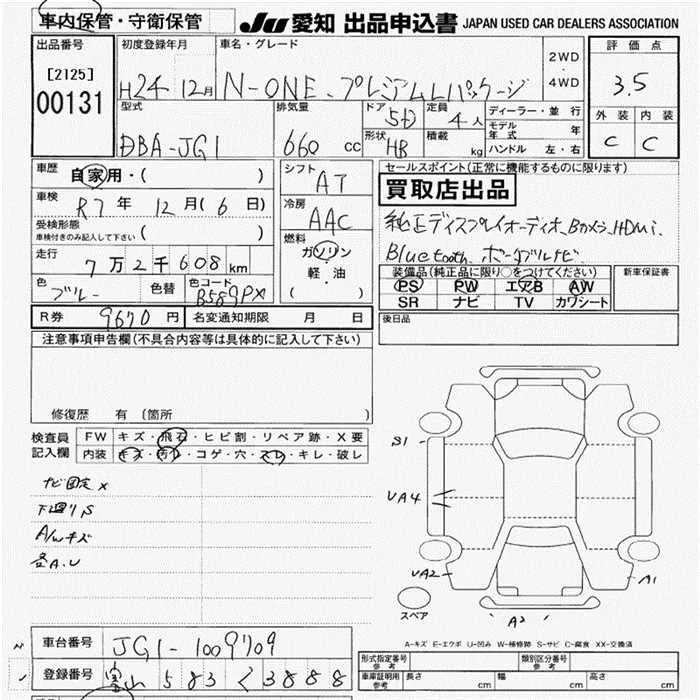 車内保管・守衛保管 JU 愛知 出品申込書 JAPAN USED CAR DEALERS ASSOCIATION
出品番号 初度登録年月 車名・グレード 2WD 4WD 評価点
[2125] 00131 H24 12月 N-ONE. プレミアムLパッケージ 3.5
型式 排気量 ドア 5D 定員 4人 ディーラー・並行 外装 内装
DBA-JG1 660 cc 形状 HB 積載 kg モデル年式 年 C C
ハンドル 左・右
車歴 自家用・( ) シフト AT セールスポイント(正常に機能するものに限ります)
車検 R7年 12月(6日) 冷房 AAC 買取店出品
受検形態 車検付きのみ記入して下さい ( ) 純正ディスプレイオーディオ、Bカメラ、HDMi、
走行 7万2千608km 燃料 ガソリン Bluetooth、ポータブルナビ
色 ブルー 色替 色コード B589PX 軽・油 ( ) 装備品(純正品に限り○をつけてください) 新車保証書
PS PW エアB AW
SR ナビ TV カワシート
R券 9670円 名変通知期限 月 日 後日品
注意事項申告欄(不具合内容等は具体的に記入して下さい)
修復歴 有 (箇所 )
検査員記入欄 FW キズ・飛石・ヒビ割・リペア跡・X要
内装 キズ・汚レ・コゲ・穴・スレ・キレ・破レ
ナビ固定×
下廻りS
A/wキズ
各A.U
B1
UA4
UA2
A1
A2
スペア
A-キズ E-エクボ U-凹み W-補修跡 S-サビ C-腐食 XX-交換済
車台番号 JG1-1009709 形式指定番号 参考 類別区分番号 参考
登録番号 富山 583 く 3888 車庫証明用 参考 長さ cm 幅 cm 高さ cm